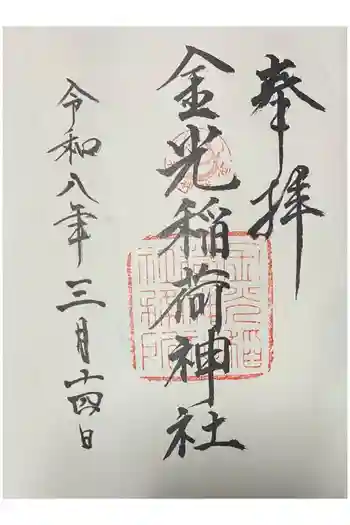 奉拝
金光稲荷神社
令和八年三月十四日